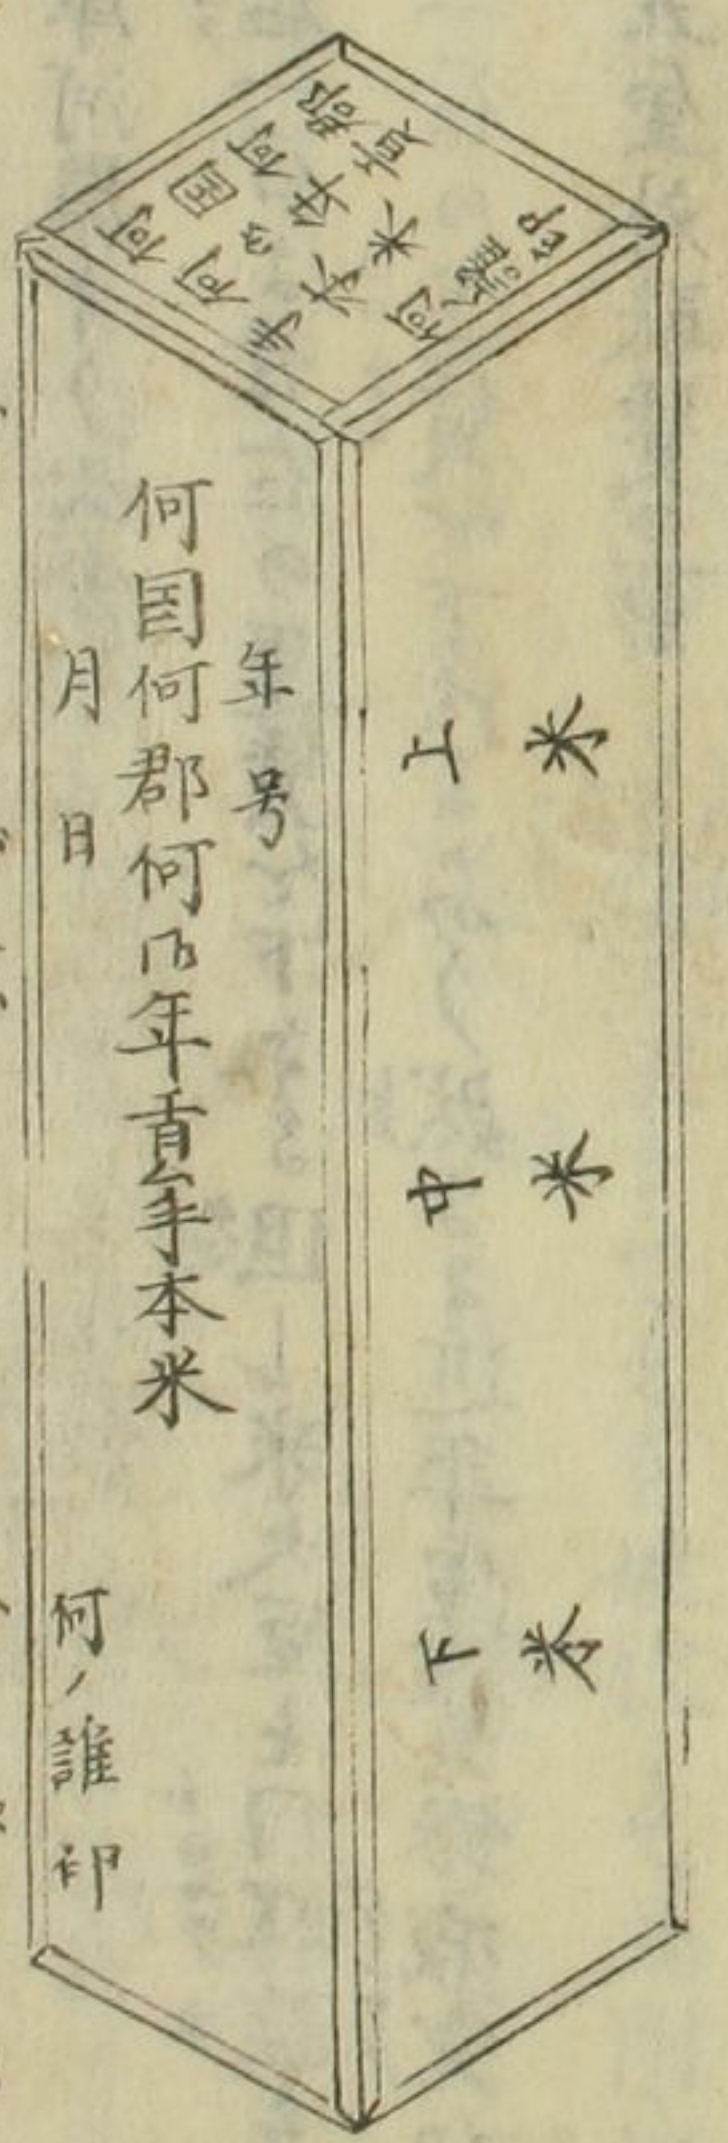 何国何郡
何年貢
手本米
何誰印
上米
中米
下米
年号
何国何郡何年貢手本米
月日
何ノ誰印